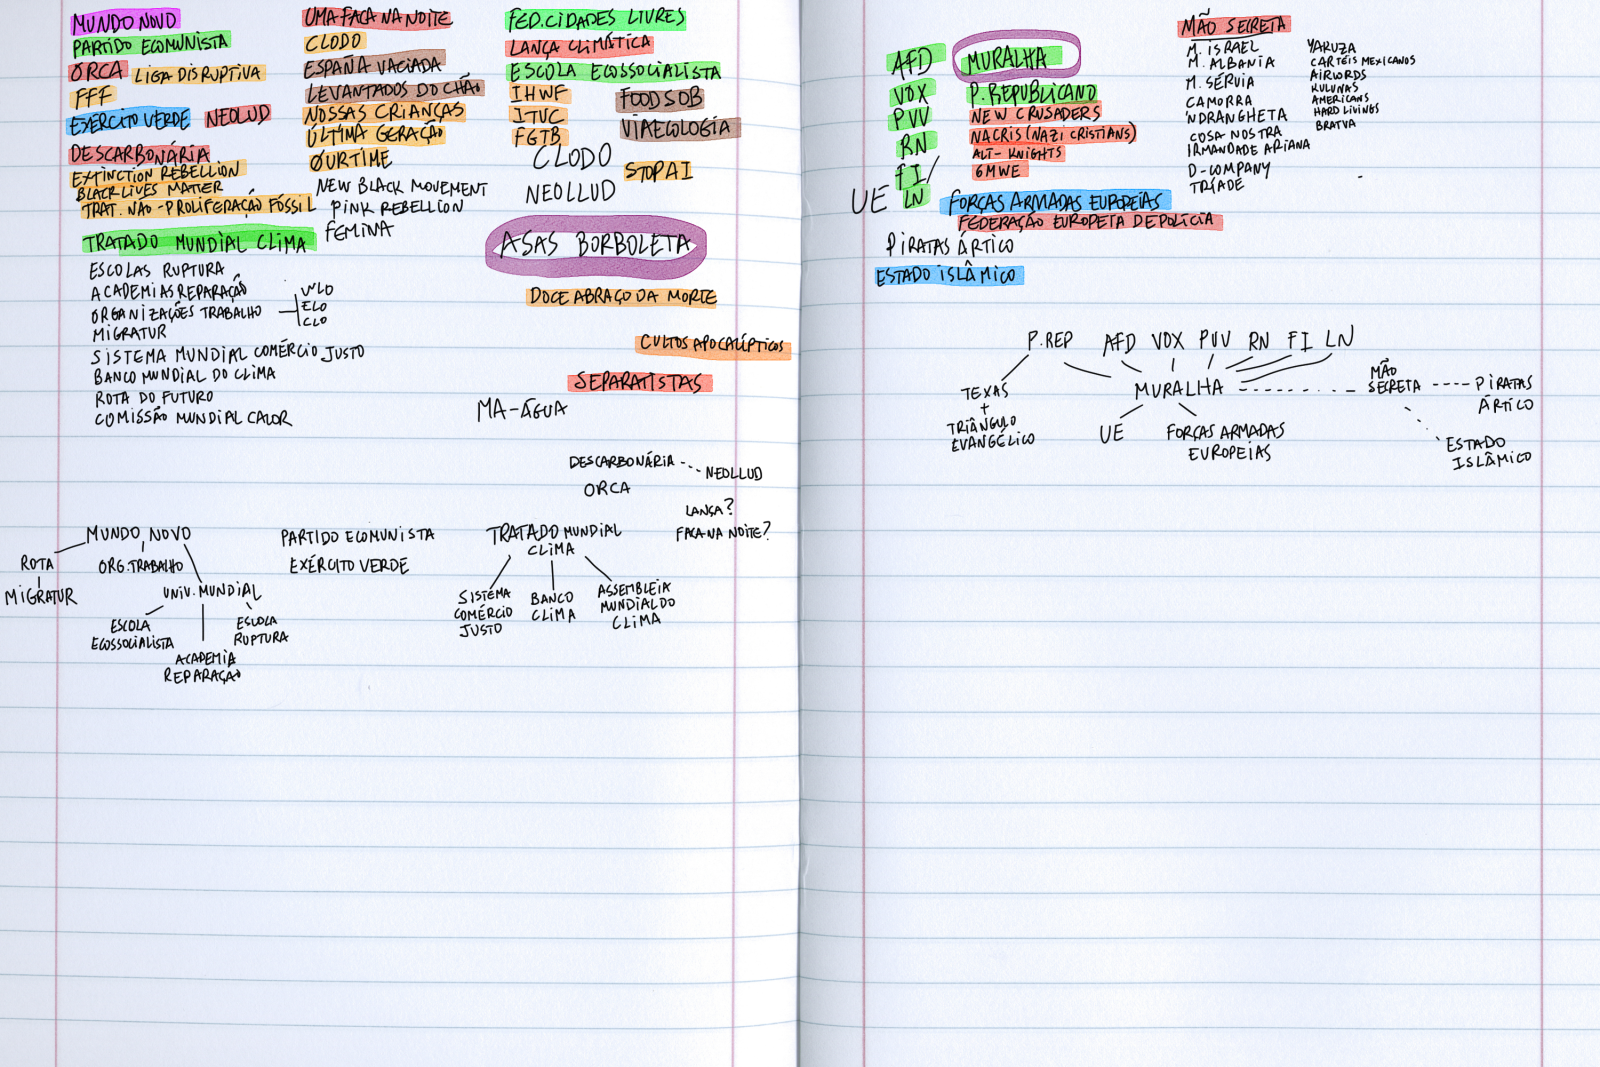 MUNDO NOVO
PARTIDO ECOMUNISTA
ORCA
LIGA DISRUPTIVA
FFF
EXÉRCITO VERDE
NEOLUD
DESCARBONÁRIA
EXTINCTION REBELLION
BLACK LIVES MATTER
TRAT. NÃO-PROLIFERAÇÃO FÓSSIL
TRATADO MUNDIAL CLIMA
ESCOLAS RUPTURA
ACADEMIAS REPARAÇÃO
ORGANIZAÇÕES TRABALHO
WLO
ELO
CLO
MIGRATUR
SISTEMA MUNDIAL COMÉRCIO JUSTO
BANCO MUNDIAL DO CLIMA
ROTA DO FUTURO
COMISSÃO MUNDIAL CALOR
UMA FACA NA NOITE
CLODO
ESPAÑA VACIADA
LEVANTADOS DO CHÃO
NOSSAS CRIANÇAS
ÚLTIMA GERAÇÃO
OURTIME
NEW BLACK MOVEMENT
PINK REBELLION
FEMINA
FED. CIDADES LIVRES
LANÇA CLIMÁTICA
ESCOLA ECOSSOCIALISTA
IHWF
FOOD SOB
ITUC
VIAECOLOGIA
FGTB
CLODO
STOPAI
NEOLLUD
ASAS BORBOLETA
DOCE ABRAÇO DA MORTE
CULTOS APOCALÍPTICOS
SEPARATISTAS
MA-ÁGUA
DESCARBONÁRIA
NEOLLUD
ORCA
LANÇA?
FACA NA NOITE?
MUNDO NOVO
ROTA
MIGRATUR
ORG. TRABALHO
UNIV. MUNDIAL
ESCOLA
ECOSSOCIALISTA
ESCOLA
RUPTURA
ACADEMIA
REPARAÇÃO
PARTIDO ECOMUNISTA
EXÉRCITO VERDE
TRATADO MUNDIAL
CLIMA
SISTEMA
COMÉRCIO
JUSTO
BANCO
CLIMA
ASSEMBLEIA
MUNDIAL DO
CLIMA
AFD
VOX
PVV
RN
FI
UE LN
MURALHA
P. REPUBLICANO
NEW CRUSADERS
NACRIS (NAZI CRISTIANS)
ALT-KNIGHTS
6MWE
FORÇAS ARMADAS EUROPEIAS
FEDERAÇÃO EUROPEIA DE POLÍCIA
PIRATAS ÁRTICO
ESTADO ISLÂMICO
MÃO SECRETA
M. ISRAEL
M. ALBANIA
M. SÉRVIA
CAMORRA
'NDRANGHETA
COSA NOSTRA
IRMANDADE ARIANA
D-COMPANY
TRÍADE
YAKUZA
CARTÉIS MEXICANOS
AIRLORDS
KULUNAS
AMERICANS
HARD LIVINGS
BRATVA
P. REP AFD VOX PVV RN FI LN
TEXAS
+
TRIÂNGULO
EVANGÉLICO
MURALHA
UE
FORÇAS ARMADAS
EUROPEIAS
MÃO
SECRETA
PIRATAS
ÁRTICO
ESTADO
ISLÂMICO